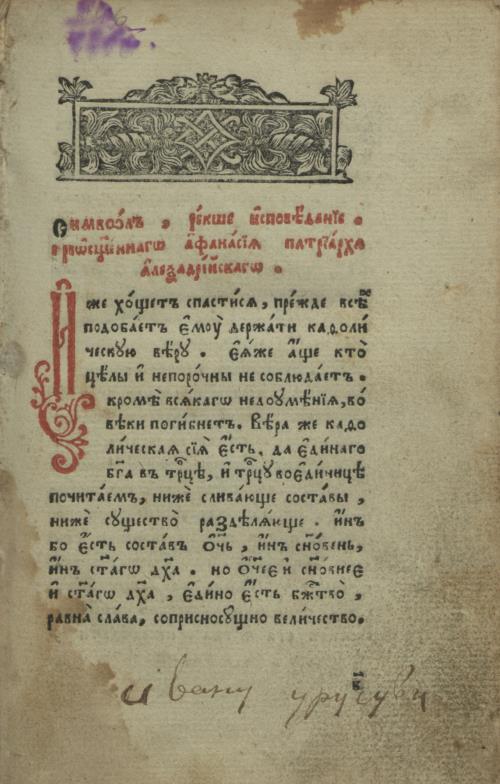 Сѷмвоⷧ҇лъ , ре́кше и҆сповѣ́данїе .
свѧщ҃е́ннагѡ а҆фана́сїѧ патрїа́рха
а҆леѯандрі́йскагѡ .
И҆́же хо́щетъ спасти́сѧ , пре́жде всѣ́х
подоба́етъ є҆моу̀ держа́ти каѳоли́
ческую вѣ́ру . Є҆ѧ́же а҆́ще кто̀
цѣ́лы и҆ непоро́чны не соблюда́етъ .
кромѣ̀ всѧ́кагѡ недоумѣ́нїѧ , во́
вѣки поги́бнет . Вѣ́ра же каѳо
ли́ческаѧ сїѧ̀ є҆́сть , да є҆ди́наго
бг҃а въ трⷪ҇цѣ , и҆ трⷪ҇цу во є҆ди́ницѣ
почита́емъ , нижѐ слива́юще соста́вы ,
нижѐ существо̀ раздѣлѧ́юще . и҆́нъ
бо є҆́сть соста́въ ѻ҆́ч҃ь , и҆́нъ сн҃о́вень ,
и҆́нъ ст҃а́гѡ дх҃а . но ѻ҆́ч҃ее и҆ сн҃о́внее
и҆ ст҃а́гѡ дх҃а , є҆ди́но є҆́сть бж҃тво̀ ,
равна̀ сла́ва , соприсносу́щно вели́чество .
ивану урусову